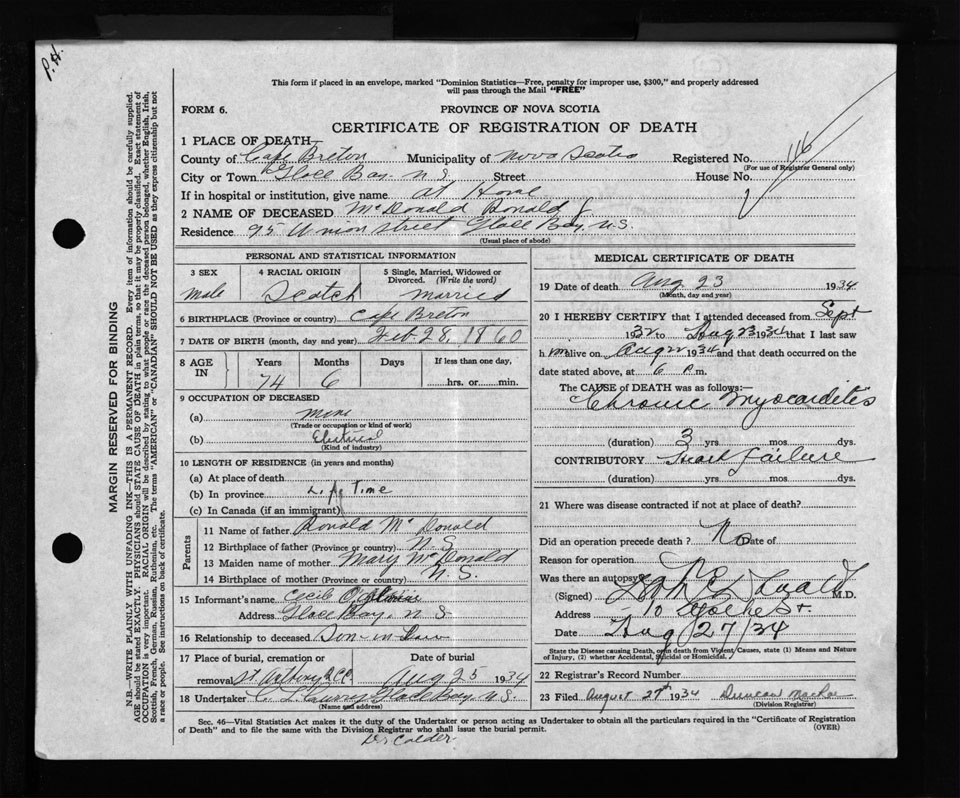 P.H.
This form if placed in an envelope, marked "Dominion Statistics—Free, penalty for improper use, $300," and properly addressed
will pass through the Mail "FREE"
FORM 6.
PROVINCE OF NOVA SCOTIA
CERTIFICATE OF REGISTRATION OF DEATH
1 PLACE OF DEATH
County of Cape Breton Municipality of Nova Scotia Registered No. 116
(For use of Registrar General only)
City or Town Glace Bay N.S. Street House No.
If in hospital or institution, give name at Home
2 NAME OF DECEASED McDonald Ronald J.
Residence 95 Union street Glace Bay, N.S.
(Usual place of abode)
PERSONAL AND STATISTICAL INFORMATION
3 SEX 4 RACIAL ORIGIN 5 Single, Married, Widowed or Divorced. (Write the word)
male Scotch married
6 BIRTHPLACE (Province or country) Cape Breton
7 DATE OF BIRTH (month, day and year) Feb 28, 1860
8 AGE IN Years Months Days If less than one day,
74 6 hrs. or min.
9 OCCUPATION OF DECEASED
(a) Mine
(Trade or occupation or kind of work)
(b) Electrical
(Kind of industry)
10 LENGTH OF RESIDENCE (in years and months)
(a) At place of death
(b) In province Life Time
(c) In Canada (if an immigrant)
Parents
11 Name of father Ronald McDonald
12 Birthplace of father (Province or country) N.S.
13 Maiden name of mother Mary McDonald
14 Birthplace of mother (Province or country) N.S.
15 Informant's name Cecil
Address Glace Bay, N S
16 Relationship to deceased Son-in-Law
17 Place of burial, cremation or Date of burial
removal St. Anthony R.C.C. Aug 25 1934
18 Undertaker C L Curry Glace Bay, N.S.
(Name and address)
MEDICAL CERTIFICATE OF DEATH
19 Date of death Aug 23 1934
(Month, day and year)
20 I HEREBY CERTIFY that I attended deceased from Sept
1932 to Aug 23 1934 that I last saw
him alive on Aug 22 1934 and that death occurred on the
date stated above, at 6 P.m.
The CAUSE of DEATH was as follows:—
Chronic Myocarditis
(duration) 3 yrs. mos. dys.
CONTRIBUTORY Heart failure
(duration) yrs. mos. dys.
21 Where was disease contracted if not at place of death?
Did an operation precede death? No Date of
Reason for operation
Was there an autopsy
(Signed) M.D.
Address
Date Aug 27/34
State the Disease causing Death, or in death from Violent Causes, state (1) Means and Nature
of Injury, (2) whether Accidental, Suicidal or Homicidal.
22 Registrar's Record Number
23 Filed August 27th 1934 Duncan
(Division Registrar)
Sec. 46—Vital Statistics Act makes it the duty of the Undertaker or person acting as Undertaker to obtain all the particulars required in the "Certificate of Registration
of Death" and to file the same with the Division Registrar who shall issue the burial permit.
(OVER)
Dr Calder
MARGIN RESERVED FOR BINDING
N.B.—WRITE PLAINLY WITH UNFADING INK—THIS IS A PERMANENT RECORD. Every item of information should be carefully supplied.
AGE should be stated EXACTLY. PHYSICIANS should STATE CAUSE OF DEATH in plain terms, so that it may be properly classified. Exact statement of
OCCUPATION is very important. RACIAL ORIGIN will be described by stating to what people or race the deceased person belonged, whether English, Irish,
Scottish, French, German, Russian, Ruthenian, etc. The terms "AMERICAN" or "CANADIAN" SHOULD NOT BE USED as they express citizenship but not
a race or people. See instructions on back of certificate.